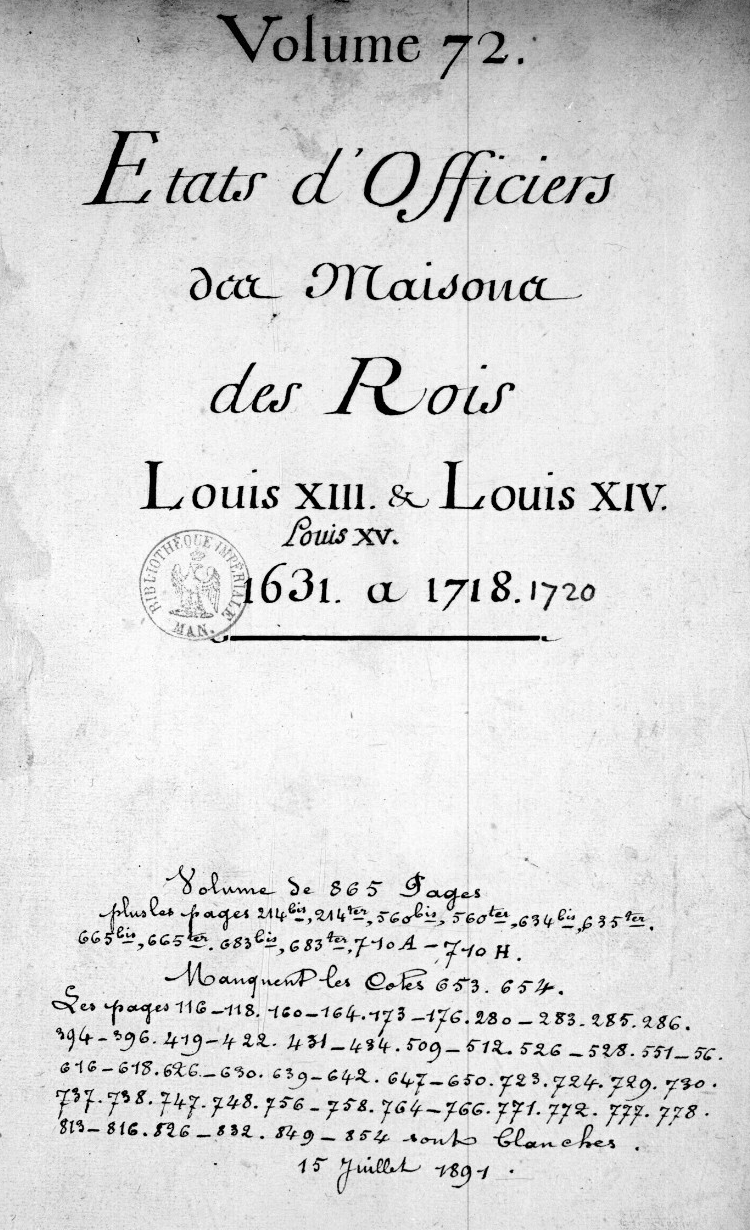 Volume 72.
Etats d'Officiers
des Maisons
des Rois
Louis XIII. & Louis XIV.
Louis XV.
BIBLIOTHÈQUE IMPÉRIALE
MAN.
1631. a 1718. 1720
Volume de 865 Pages
plus les pages 214bis, 214ter, 560bis, 560ter, 634bis, 635ter.
665bis, 665ter. 683bis, 683ter, 710 A – 710 H.
Manquent les Cotes 653. 654.
Les pages 116–118. 160–164. 173–176. 280–283. 285. 286.
394–396. 419–422. 431–434. 509–512. 526–528. 551–56.
616–618. 626–630. 639–642. 647–650. 723. 724. 729. 730.
737. 738. 747. 748. 756–758. 764–766. 771. 772. 777. 778.
813–816. 826–832. 849–854 sont blanches.
15 Juillet 1891.